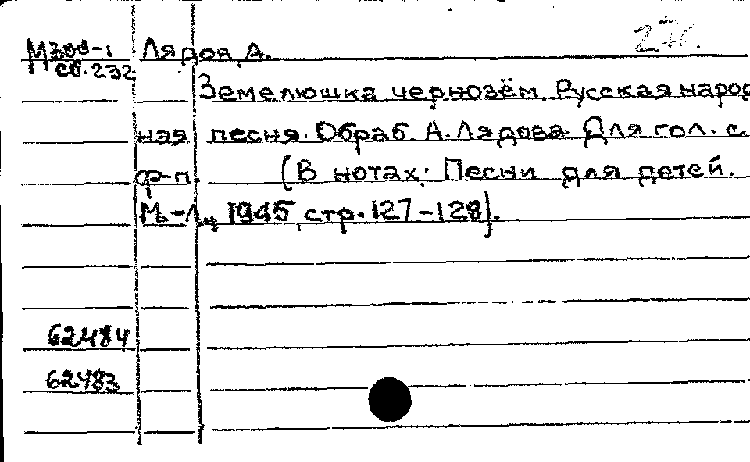 Лядов, А.
сб. 232
Земелюшка чернозём. Русская народ
ная песня. Обраб. А. Лядова. Для гол. с
ф-п. (В нотах: Песни для детей.
М.-Л., 1945, стр. 127-128).
62484
62483